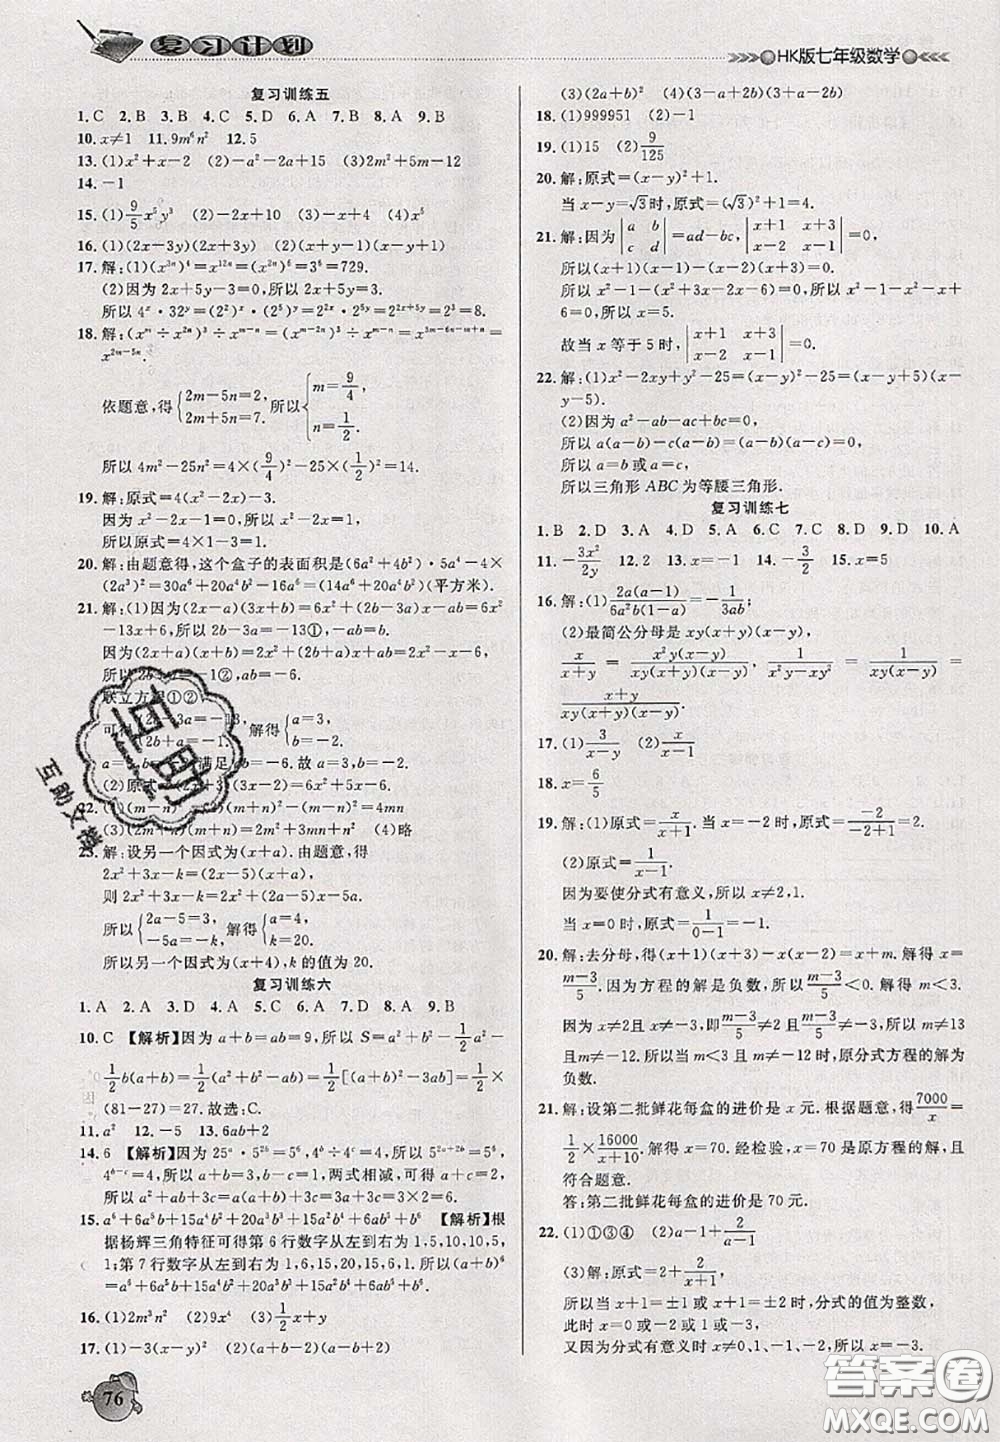 复习计划
HK版七年级数学
复习训练五
1.C 2.B 3.B 4.C 5.D 6.A 7.B 8.A 9.B
10.x≠1 11.9m⁶n² 12.5
13.(1)x²+x-2 (2)-a²-2a+15 (3)2m²+5m-12
14.-1
15.(1)9/5x⁵y³ (2)-2x+10 (3)-x+4 (4)x⁵
16.(1)(2x-3y)(2x+3y) (2)(x+y-1)(x-y+1)
17.解:(1)(x³ⁿ)⁴=x¹²ⁿ=(x²ⁿ)⁶=3⁶=729.
(2)因为2x+5y-3=0,所以2x+5y=3.
所以4ˣ·32ʸ=(2²)ˣ·(2⁵)ʸ=2²ˣ·2⁵ʸ=2²ˣ⁺⁵ʸ=2³=8.
18.解:(xᵐ÷x²ⁿ)³÷xᵐ⁻ⁿ=(xᵐ⁻²ⁿ)³÷xᵐ⁻ⁿ=x³ᵐ⁻⁶ⁿ⁻ᵐ⁺ⁿ=
x²ᵐ⁻⁵ⁿ.
依题意,得{2m-5n=2, 2m+5n=7. 所以{m=9/4, n=1/2.
所以4m²-25n²=4×(9/4)²-25×(1/2)²=14.
19.解:原式=4(x²-2x)-3.
因为x²-2x-1=0,所以x²-2x=1.
所以原式=4×1-3=1.
20.解:由题意得,这个盒子的表面积是(6a²+4b²)·5a⁴-4×
(2a³)²=30a⁶+20a⁴b²-16a⁶=(14a⁶+20a⁴b²)(平方米).
21.解:(1)因为(2x-a)(3x+b)=6x²+(2b-3a)x-ab=6x²
-13x+6,所以2b-3a=-13①,ab=-6.
因为(2x+a)(x+b)=2x²+(a+2b)x+ab=2x²-x-6,
所以2b+a=-1②,ab=-6.
联立方程①②,
可得{2b-3a=-13, 2b+a=-1. 解得{a=3, b=-2.
a=3,b=-2满足ab=-6.故a=3,b=-2.
(2)原式=(2x+3)(3x-2)=6x²+5x-6.
22.(1)(m-n)² (2)(m+n)²-(m-n)²=4mn
(3)(2m+n)(m+n)=2m²+3mn+n² (4)略
23.解:设另一个因式为(x+a).由题意,得
2x²+3x-k=(2x-5)(x+a),
则2x²+3x-k=2x²+(2a-5)x-5a.
所以{2a-5=3, -5a=-k, 解得{a=4, k=20.
所以另一个因式为(x+4),k的值为20.
复习训练六
1.A 2.A 3.D 4.D 5.A 6.D 7.A 8.A 9.B
10.C 【解析】因为a+b=ab=9,所以S=a²+b²-1/2a²-
1/2b(a+b)=1/2(a²+b²-ab)=1/2[(a+b)²-3ab]=1/2×
(81-27)=27.故选:C.
11.a² 12.-5 13.6ab+2
14.6 【解析】因为25ᵃ·5²ᵇ=5⁶,4ᵇ÷4ᶜ=4,所以5²⁽ᵃ⁺ᵇ⁾=5⁶,
4ᵇ⁻ᶜ=4,所以a+b=3,b-c=1,两式相减,可得a+c=2,
所以a²+ab+3c=a(a+b)+3c=3a+3c=3×2=6.
15.a⁶+6a⁵b+15a⁴b²+20a³b³+15a²b⁴+6ab⁵+b⁶ 【解析】根
据杨辉三角特征可得第6行数字从左到右为1,5,10,10,5,
1;第7行数字从左到右为1,6,15,20,15,6,1,所以(a+b)⁶
=a⁶+6a⁵b+15a⁴b²+20a³b³+15a²b⁴+6ab⁵+b⁶.
16.(1)2m³n² (2)9x⁴ (3)1/2x+y
17.(1)-3(x-y)² (2)(a+b)(a-b)(a²+b²)
76
(3)(2a+b)² (4)(3-a+2b)(3+a-2b)
18.(1)999951 (2)-1
19.(1)15 (2)9/125
20.解:原式=(x-y)²+1.
当x-y=√3时,原式=(√3)²+1=4.
21.解:因为|a b; c d|=ad-bc,|x+1 x+3; x-2 x-1|=0,
所以(x+1)(x-1)-(x-2)(x+3)=0,
所以x²-1-(x²+3x-2x-6)=0,所以x²-1-x²-x+
6=0,所以x=5.
故当x等于5时,|x+1 x+3; x-2 x-1|=0.
22.解:(1)x²-2xy+y²-25=(x-y)²-25=(x-y+5)(x
-y-5).
(2)因为a²-ab-ac+bc=0,
所以a(a-b)-c(a-b)=0,所以(a-b)(a-c)=0,
所以a=b或a=c,
所以三角形ABC为等腰三角形.
复习训练七
1.B 2.D 3.A 4.D 5.A 6.C 7.C 8.D 9.D 10.A
11.-3x²/2y 12.2 13.x=-1 14.-3/2 15.x=5
16.解:(1)2a(a-1)/6a²b(1-a)=-1/3ab;
(2)最简公分母是xy(x+y)(x-y),
x/(x+y)=x²y(x-y)/xy(x+y)(x-y), 1/(x²y-xy²)=1/xy(x-y)=
(x+y)/xy(x+y)(x-y).
17.(1)3/(x-y) (2)x/(x-1)
18.x=6/5
19.解:(1)原式=x/(x+1).当x=-2时,原式=-2/(-2+1)=2.
(2)原式=1/(x-1).
因为要使分式有意义,所以x≠2,1.
当x=0时,原式=1/(0-1)=-1.
20.解:去分母,得(x+1)(x+3)-x(x-2)=x+m.解得x=
(m-3)/5.因为方程的解是负数,所以(m-3)/5<0.解得m<3.
因为x≠2且x≠-3,即(m-3)/5≠2且(m-3)/5≠-3,所以m≠13
且m≠-12.所以当m<3且m≠-12时,原分式方程的解为
负数.
21.解:设第二批鲜花每盒的进价是x元.根据题意,得7000/x=
1/2×16000/(x+10).解得x=70.经检验,x=70是原方程的解,且
符合题意.
答:第二批鲜花每盒的进价是70元.
22.(1)①③④ (2)a-1+2/(a-1)
(3)解:原式=2+2/(x+1),
所以当x+1=±1或x+1=±2时,分式的值为整数,
此时x=0或-2或1或-3.
又因为分式有意义时x≠0,1,-1,-2,所以x=-3.
互助
互助文档
答案圈
MXQE.COM